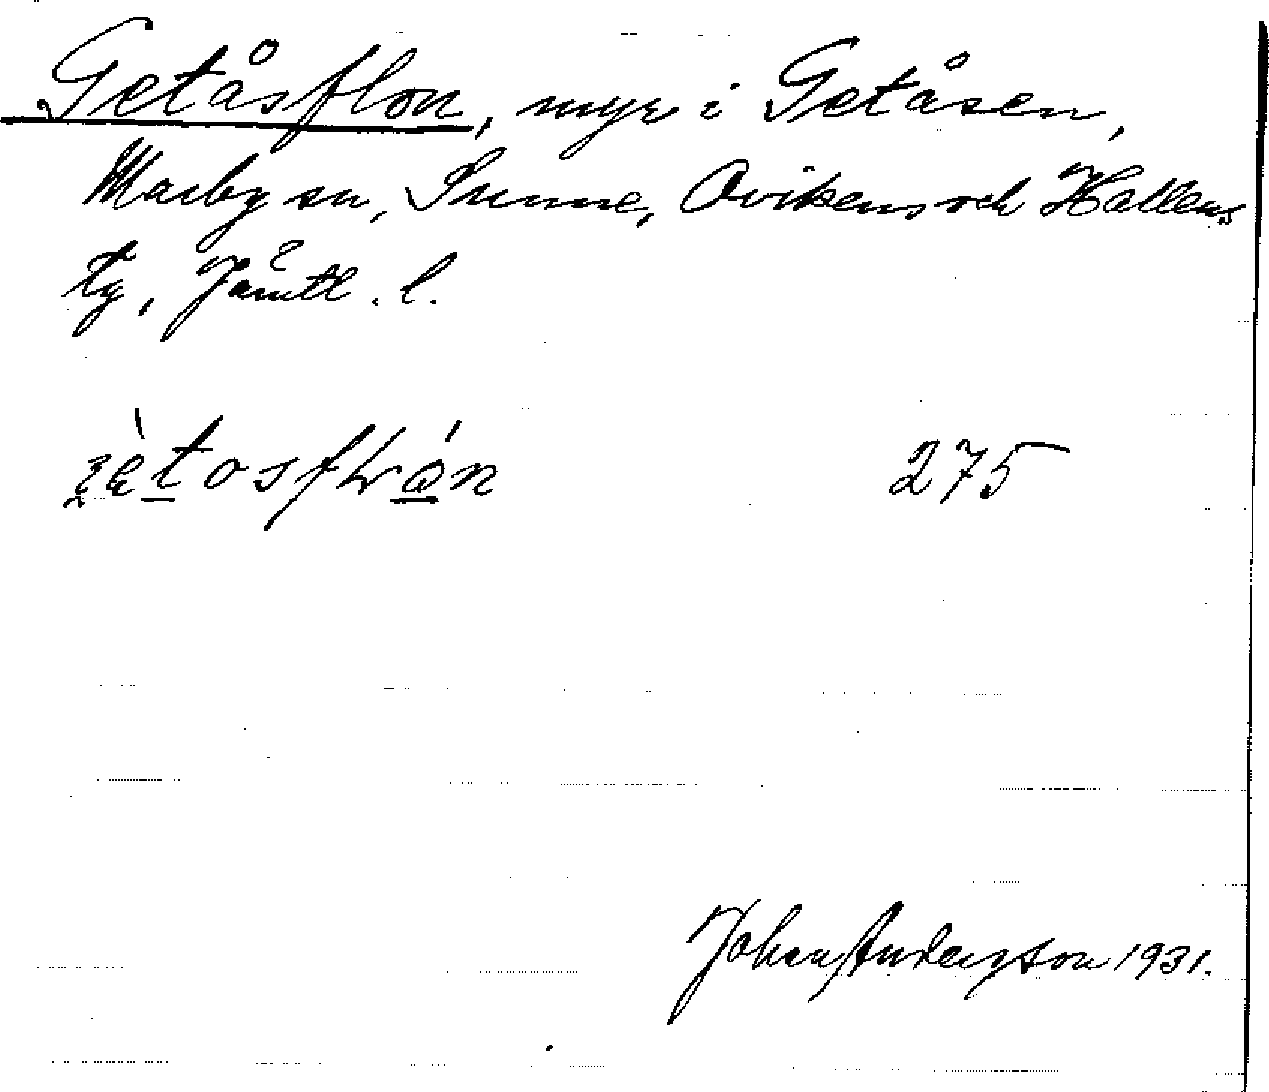 Getåsflon, myr i Getåsen,
Marby sn, Sunne, Ovikens och Hallens
tg, Jämtl. l.
275
Johan Anderson 1931.